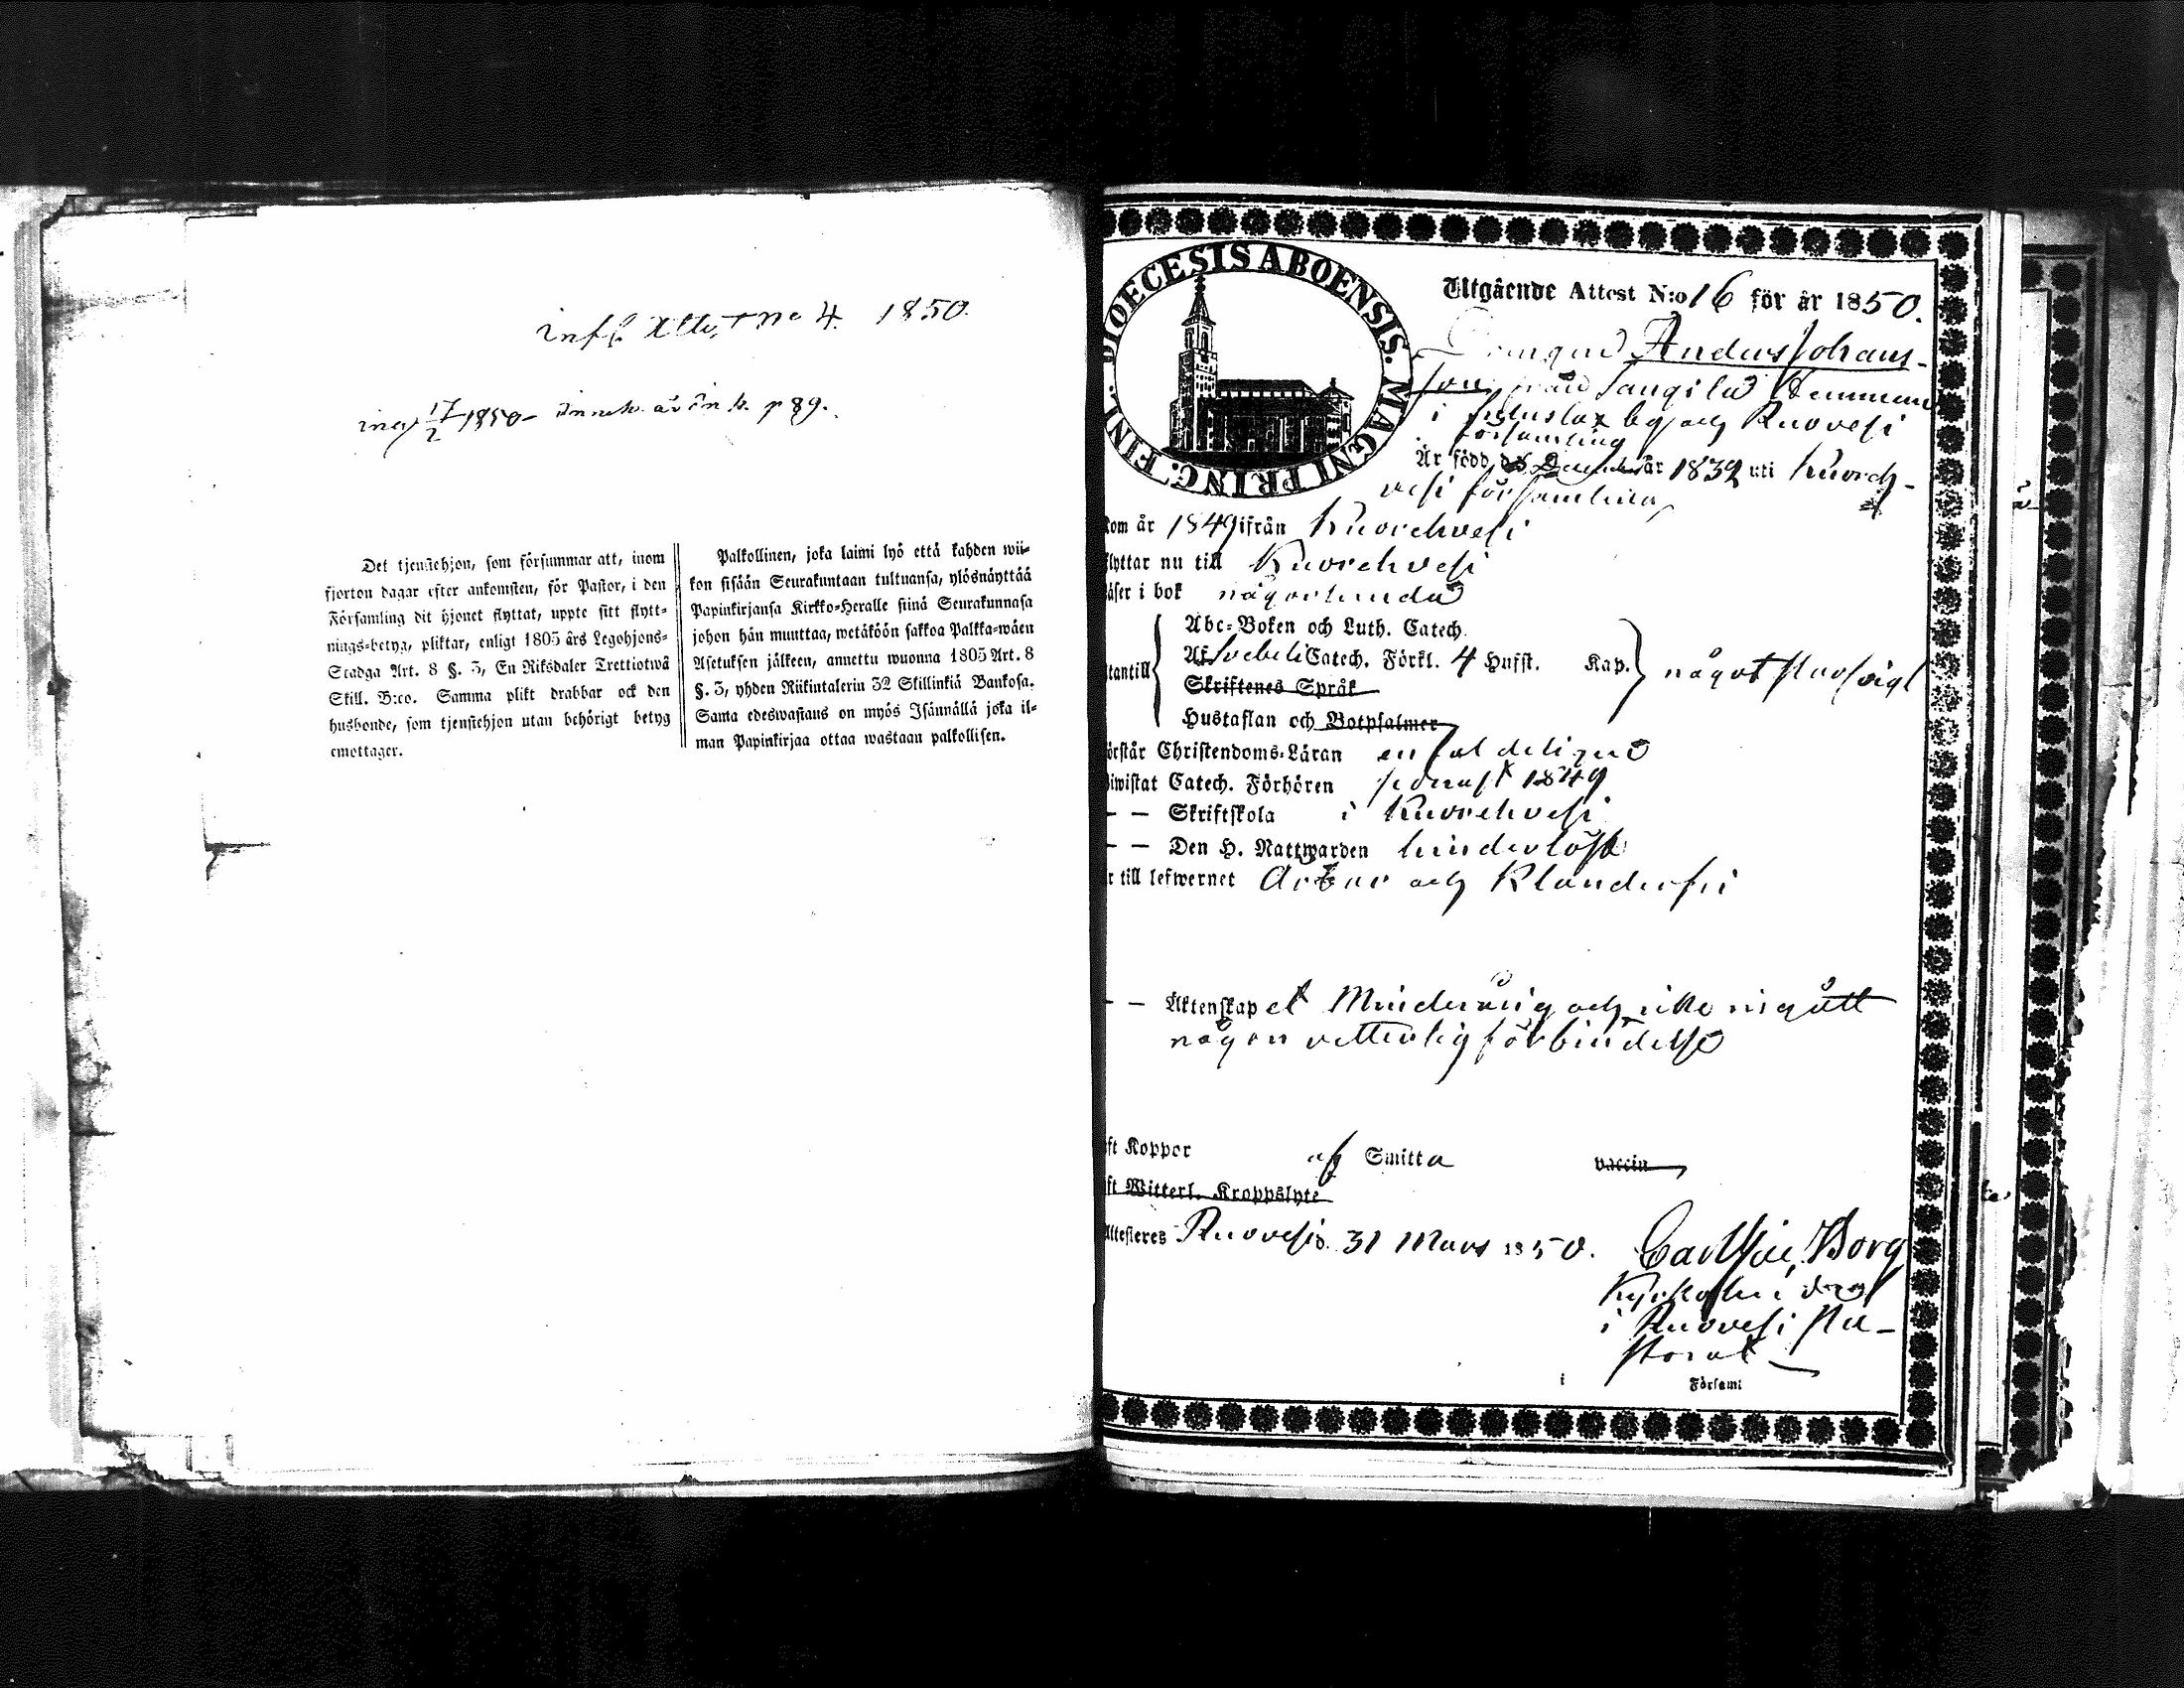 Attest No 4. 1850.
1850 p 89.
Det tjenstehjon, som försummar att, inom
fjorton dagar efter ankomsten, för Pastor, i den
Församling dit hjonet flyttat, uppte sitt flytt-
nings-betyg, pliktar, enligt 1805 års Legohjons-
Stadga Art. 8 §. 3, En Riksdaler Trettiotwå
Skill. B:co. Samma plikt drabbar ock den
husbonde, som tjenstehjon utan behörigt betyg
emottager.
Palkollinen, joka laimi lyö että kahden wii-
kon sisään Seurakuntaan tultuansa, ylösnäyttää
Papinkirjansa Kirkko-Heralle siinä Seurakunnasa
johon hän muuttaa, wetäköön sakkoa Palkka-wäen
Asetuksen jälkeen, annettu wuonna 1805 Art. 8
§. 3, yhden Riikintalerin 32 Skillinkiä Bankosa.
Sama edeswastaus on myös Isännällä joka il-
man Papinkirjaa ottaa wastaan palkollisen.
DIOECESIS ABOENSIS. MAGNI PRINC. FINL.
Utgående Attest N:o 16 för år 1850.
Drängen Anders Johans-
son från hemman
i by och Ruovesi
församling
Är född d. December år 1832 uti Kuoreh-
vesi församling
kom år 1849 ifrån Kuorehvesi
flyttar nu till Kuorehvesi
läser i bok någorlunda
Abc-Boken och Luth. Catech.
Af Svebeli Catech. Förkl. 4 Hufst. Kap.
utantill något
Skriftenes Språk
Hustaflan och Botpsalmer
förstår Christendoms-Läran enfaldeligen
biwistat Catech. Förhören senast 1849
— — Skriftskola i Kuorehvesi
— — Den H. Nattwarden hinderlöst
är till lefwernet ärbar och klanderfri
— — Äktenskapet Minderårig och icke ingått
någon vetterlig förbindelse
haft Koppor af Smitta vaccin
haft Witterl. Kroppslyte
Attesteres Ruovesi d. 31 Mars 1850. Borg
i Ruovesi Pa-
storat
i Församl